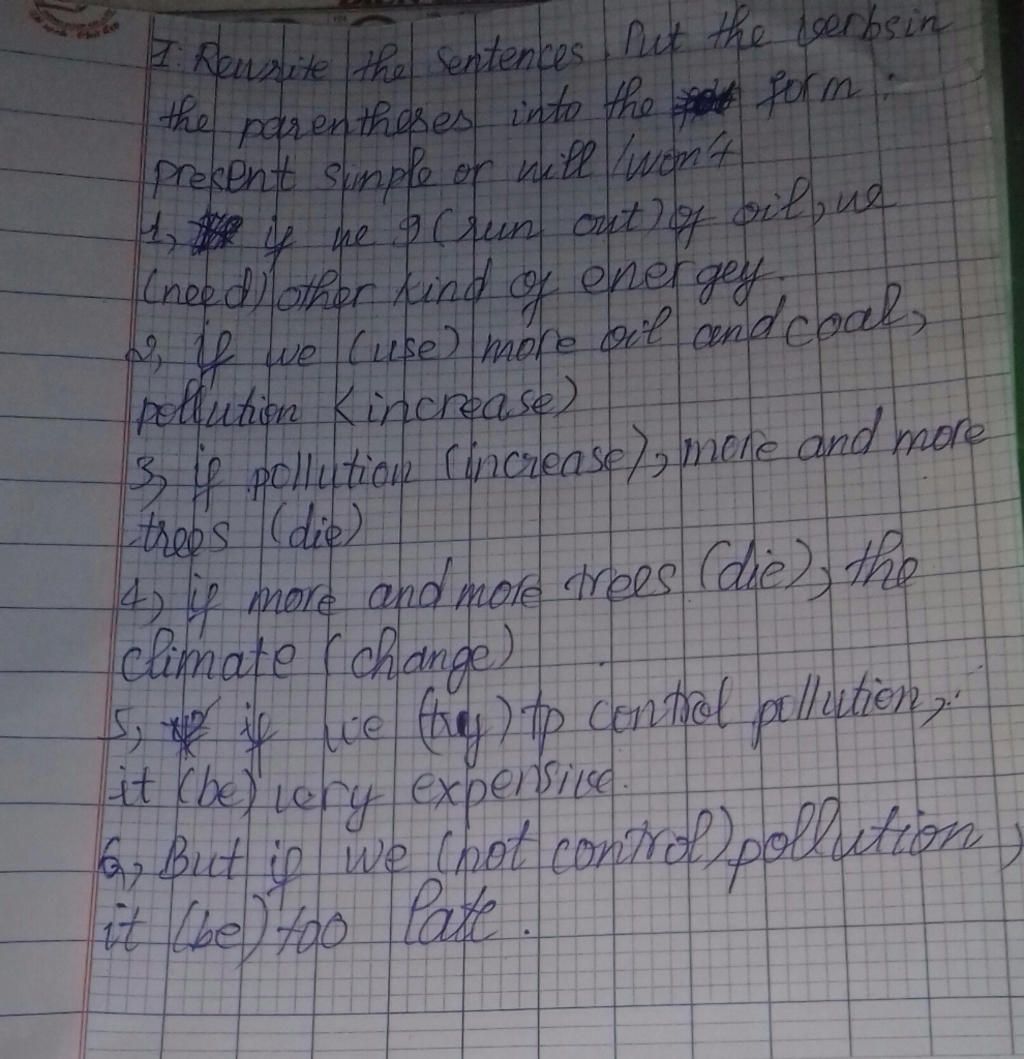 I. Rewrite the sentences. Put the verbs in
the parentheses into the form:
present simple or will / won't
1, if we (run out) of oil, we
(need) other kind of energey.
2, if we (use) more oil and coal,
pollution (increase)
3, if pollution (increase), more and more
trees (die)
4, if more and more trees (die), the
climate (change)
5, if we (try) to control pollution,
it (be) very expensive.
6, But if we (not control) pollution,
it (be) too late.